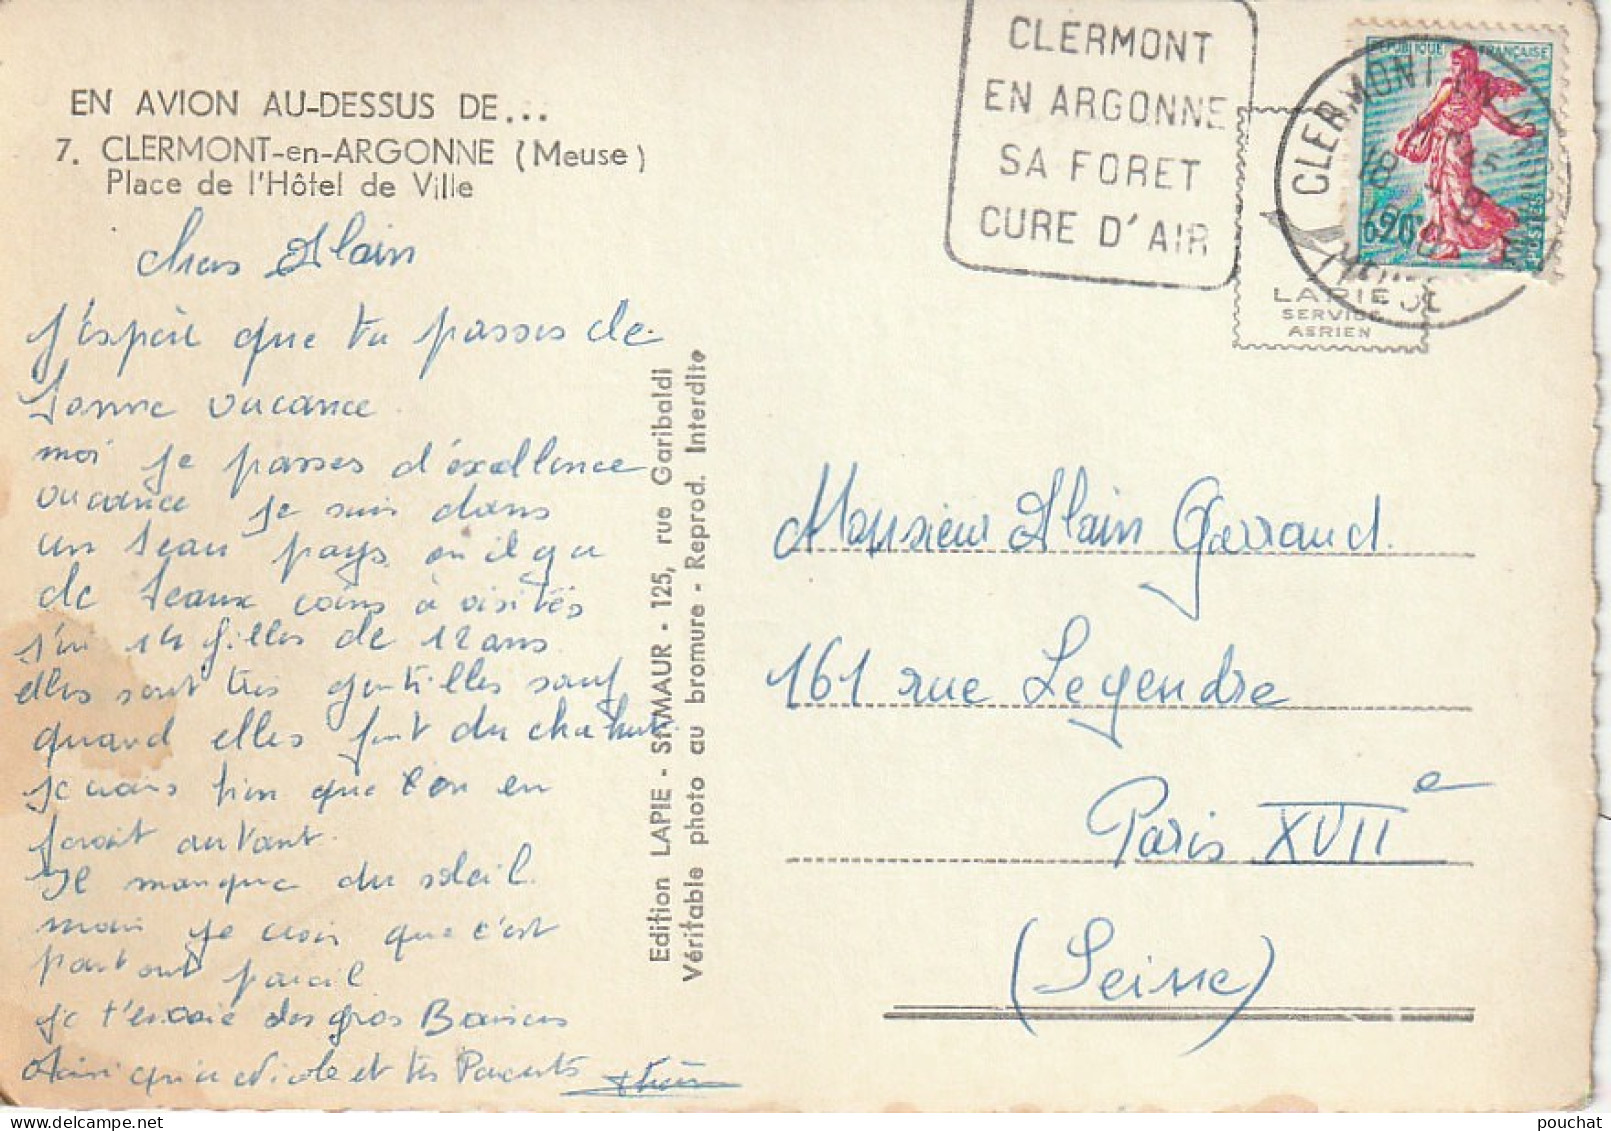 EN AVION AU-DESSUS DE...
7. CLERMONT-en-ARGONNE (Meuse)
Place de l'Hôtel de Ville
chers Alain
J'espère que tu passes de
bonne vacance.
moi je passes d'éxellence
vacance je suis dans
un beau pays où il y a
de beaux coins à visités
j'ai 14 filles de 12 ans
elles sont très gentilles sauf
quand elles font du chahut
je crois bien que l'on en
ferait autant.
Il manque du soleil.
mais je crois que c'est
partout pareil
je t'envoie des gros Baisers
Ainsi qu'a Nicole et tes Parents
Edition LAPIE - St-MAUR - 125, rue Garibaldi
Véritable photo au bromure - Reprod. Interdite
CLERMONT
EN ARGONNE
SA FORET
CURE D'AIR
REPUBLIQUE FRANÇAISE
0,20
POSTES
CLERMONT EN
MEUSE
LAPIE
SERVICE
AERIEN
Monsieur Alain Garraud.
161 rue Legendre
Paris XVII e
(Seine)
pouchat